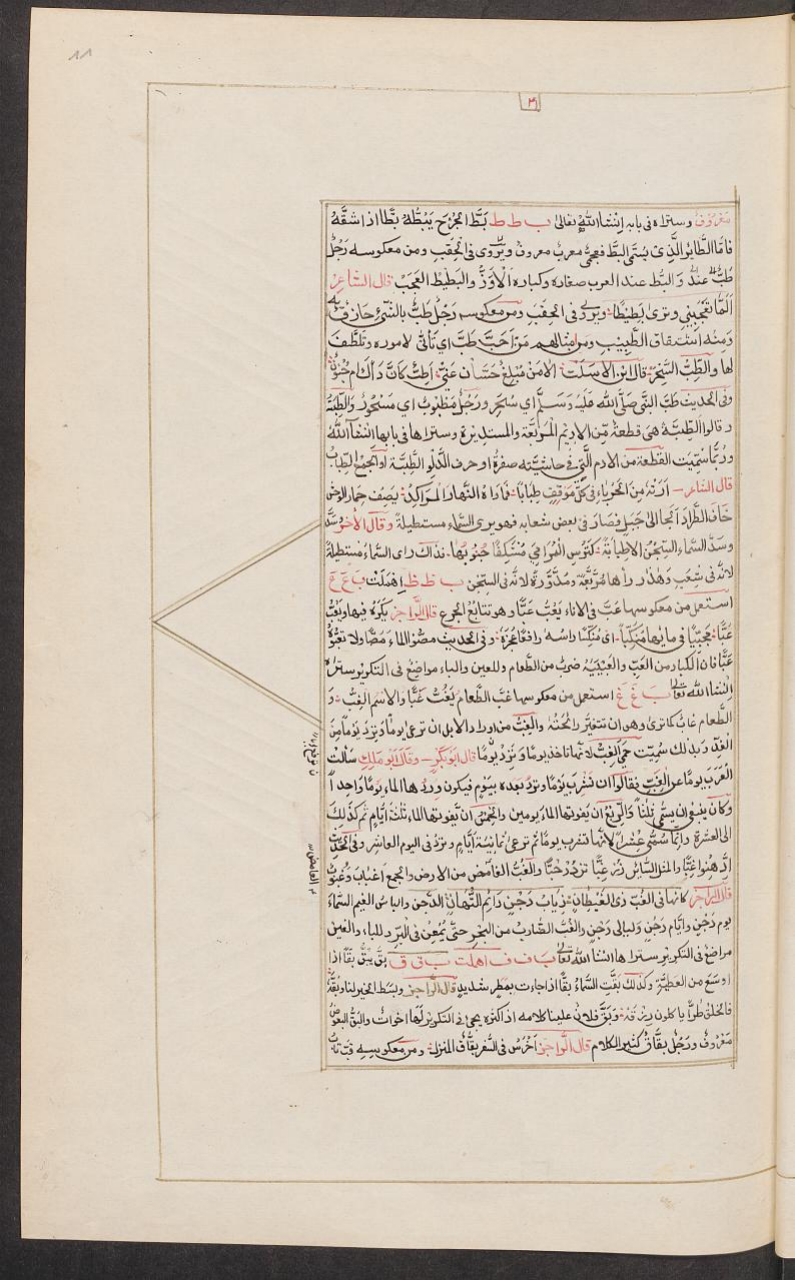 ١١
٢١
معروف وستراه فى بابه انشاالله تعالى ب ط ط بَطَّ الجُرْح يَبُطُّهُ بَطًّا اذا شقَّهُ
فامّا الطَّائرُ الَّذِىْ يُسَمَّى البَطَّ فعجمىٌّ معربٌ معروف ويُرْوى فى الحِقبِ ومن معكوسه رَجُلٌ
طَبٌّ عند والبَطُّ عند العرب صغاره وكباره اَلْاَوَزُّ والبَطِيْطُ العَجَبُ قال الشاعِرُ
اَلَمَّا تَعْجَبِىْ وترى بَطِيْطًا ويروى فى الحِقَبِ ومن معكوسه رَجُلٌ طَبٌّ بالشّىْءِ حازقٌ به
ومنه اشتقاق الطَّبِيْبِ ومن امثالهم مَنْ اَحَبَّ طَبَّ اى تَأَتَّى لاموره وتلطَّفَ
لها والطِّبُّ السِّحْرُ قال ابن الاسلت الا مَنْ مُبْلِغٌ حَسَّان عَنّىْ اَطِبٌّ كَانَ دَاكَ ام جُنُوْنٌ
وفى الحديث طَبَّ النبى صَلَّى الله عَلَيْهِ وَسَلَّم اى سُحِرَ ورَجُلٌ مَطْبُوْبٌ اى مَسْحُوْرٌ والطِّبَّةُ
وقالوا الطِّبَّةُ هى قطعةٌ مِّن الاديْمِ المربَّعَة والمستديْرة وستراها فى بابها انشاالله
وربَّما سُمِّيَت القطعة من الادم الَّتِى فى حاشيَتِه صفرة او حرف الدَّلْو الطِّبَّة والجمعُ الطِّبابُ
قال الشاعر اَرَتْهُ مِنَ الجَرْبَاءِ فى كلّ مَوْقفٍ طِبَابًا فَمَاْوَاهُ النَّهارَ المراكدُ يَصِف حِمار الوحش
خَافَ الطِّرادَ اَلجا الى جَبَلٍ فصَارَ فى بعض شعابه فهو يرى السَّمَاءَ مستطيلةً وقال الاٰخر وسَدَّ
وسدَّ السَّماءَ السِّجْنُ الا طِبابَةً كتُرْسِ المُرامِىْ مُسْتَكِفًّا جُنُوْبُهَا فذاك راى السَّماءَ مُسْتطِيلةً
لانَّهُ فى شِعْبٍ وهٰذا راٰها مُرَبَّعَةً ومُدَوَّرةً لانَّهُ فى السِّجن ب ظ ظ اهملت ب ع ع
استعمل من معكوسها عَبَّ فى الاناء يَعُبُّ عَبًّا وهو تتابُعُ الجرع قال الرَّاجز يَكْرَعُ فيها ويَعُبُّ
عَبًّا مُجَبِّيًا فى مائِها مُنْكَبًّا اى مُنَكِّسًا راسَهُ رافعًا عَجُزَهُ وفى الحديث مصُّوا الماءَ مَصًّا ولا تعُبُّوْهُ
عَبًّا فان الكُبَاد من العَبِّ والعَبِيْبَةُ ضربٌ من الطَّعام وللعين والباء مواضعُ فى التكرير ستراه
انشاالله تعالى ب غ غ استعمل من معكوسها غَبَّ الطَّعامُ يَغِبُّ غَبًّا والاسْمُ الغِبُّ و
الطَّعام غابٌّ كما ترى وهو ان تتغيَّر رائحتُهُ والغِبُّ من اوراد الابل ان ترعى يومًا وتَرِدَ يَوْمًا من
الغد وبذلك سُمِّيت حُمَّى الغِبِّ لانّها تاخذ يومًا وتَرْفُهُ يومًا قال ابوبكر وقال ابو مَلِك سألت
العَرَبَ يومًا عن الغِبِّ فقالوا ان تَشْرَبَ يَوْمًا وتَرِدَ بعده بيوم فيكون وردها الماء يومًا واحدًا
وكان ينبغى ان يسمَّى ثِلْثًا والرِّبْعُ ان يفوتها الماء يومين والخِمْسُ ان يفوتها الماء ثلٰثَ ايَّام ثم كذلك
الى العشرة وانّما سُمِّىَ عِشْرًا لانّها تشرب يومًا ثم ترعى ثمانِيَةَ ايَّام وترد فى اليوم العاشر وفى الحديث
ادَّهِنُوا غِبًّا والمثل السَّائر زُرْ غِبًّا تزدَدْ حُبًّا والغُبُّ الغامض من الارض والجمع اغبابٌ وغُبُوْبٌ
قال الراجز كانها فى الغُبِّ ذى الغيطانِ ذِيابُ دَجْنٍ دَائِم التَّهتانِ الدَّجن والباسُ الغيم السَّماءَ
يوم دَجْنٍ وايّام دَجْنٍ وليالى دَجْنٍ والغُبُّ الضَّارب من البحر حتَّى يُمْعِنُ فى البَرّ وللباء والغين
مواضع فى التكرير ستراها انشاالله تعالى ب ف ف اهملت ب ق ق بَقَّ يَبُقُّ بقًّا اذا
اوسَعَ من العطيَّةِ وكذلك بقَّتِ السَّماءُ بقًّا اذا جاءت بمطر شديد قال الراجز وبسط الخير لنا وبقَّهُ
فالخلق طُرًّا ياكلون رِزْقَهُ وبَقَّ فلانٌ علينا كلامه اذا كثره يجىُ فى التكرير لها اخوات والبقُّ البعوضُ
مَعْرُوْف ورَجُلٌ بقَّاقٌ كثير الكلام قال الراجز اَخْرَسُ فى السَّفر بقَّاقُ المنزل ومن معكوسه قَبَّ نابُ
الغامض